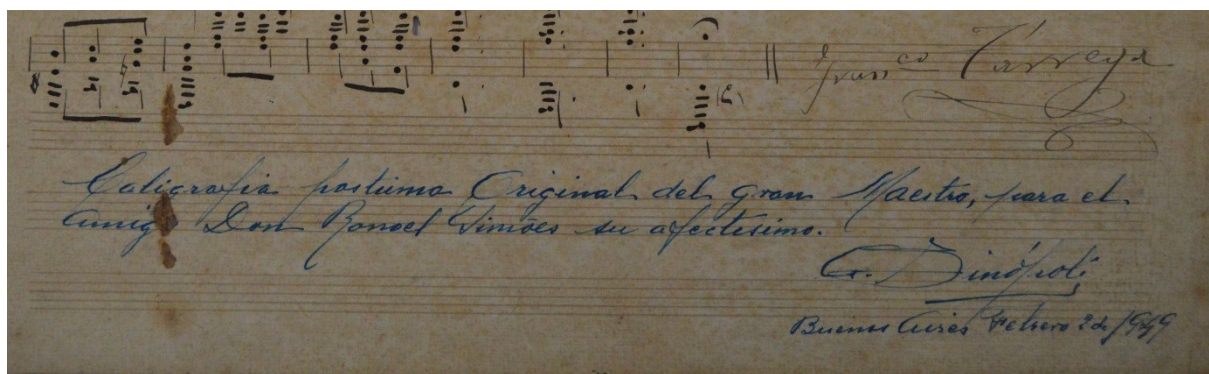 Franco Tárrega
Caligrafia postuma Original del gran Maestro, para el
amigo Don Ronoel Simões su afectisimo.
A. Sinópoli
Buenos Aires Febrero 2 de 1949